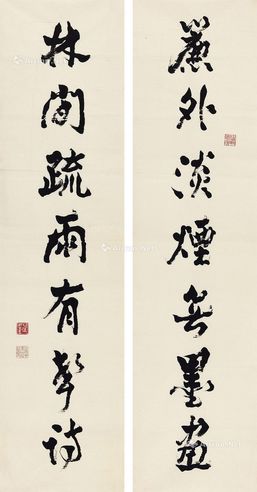 簾外淡煙無墨畫
林間疏雨有聲詩